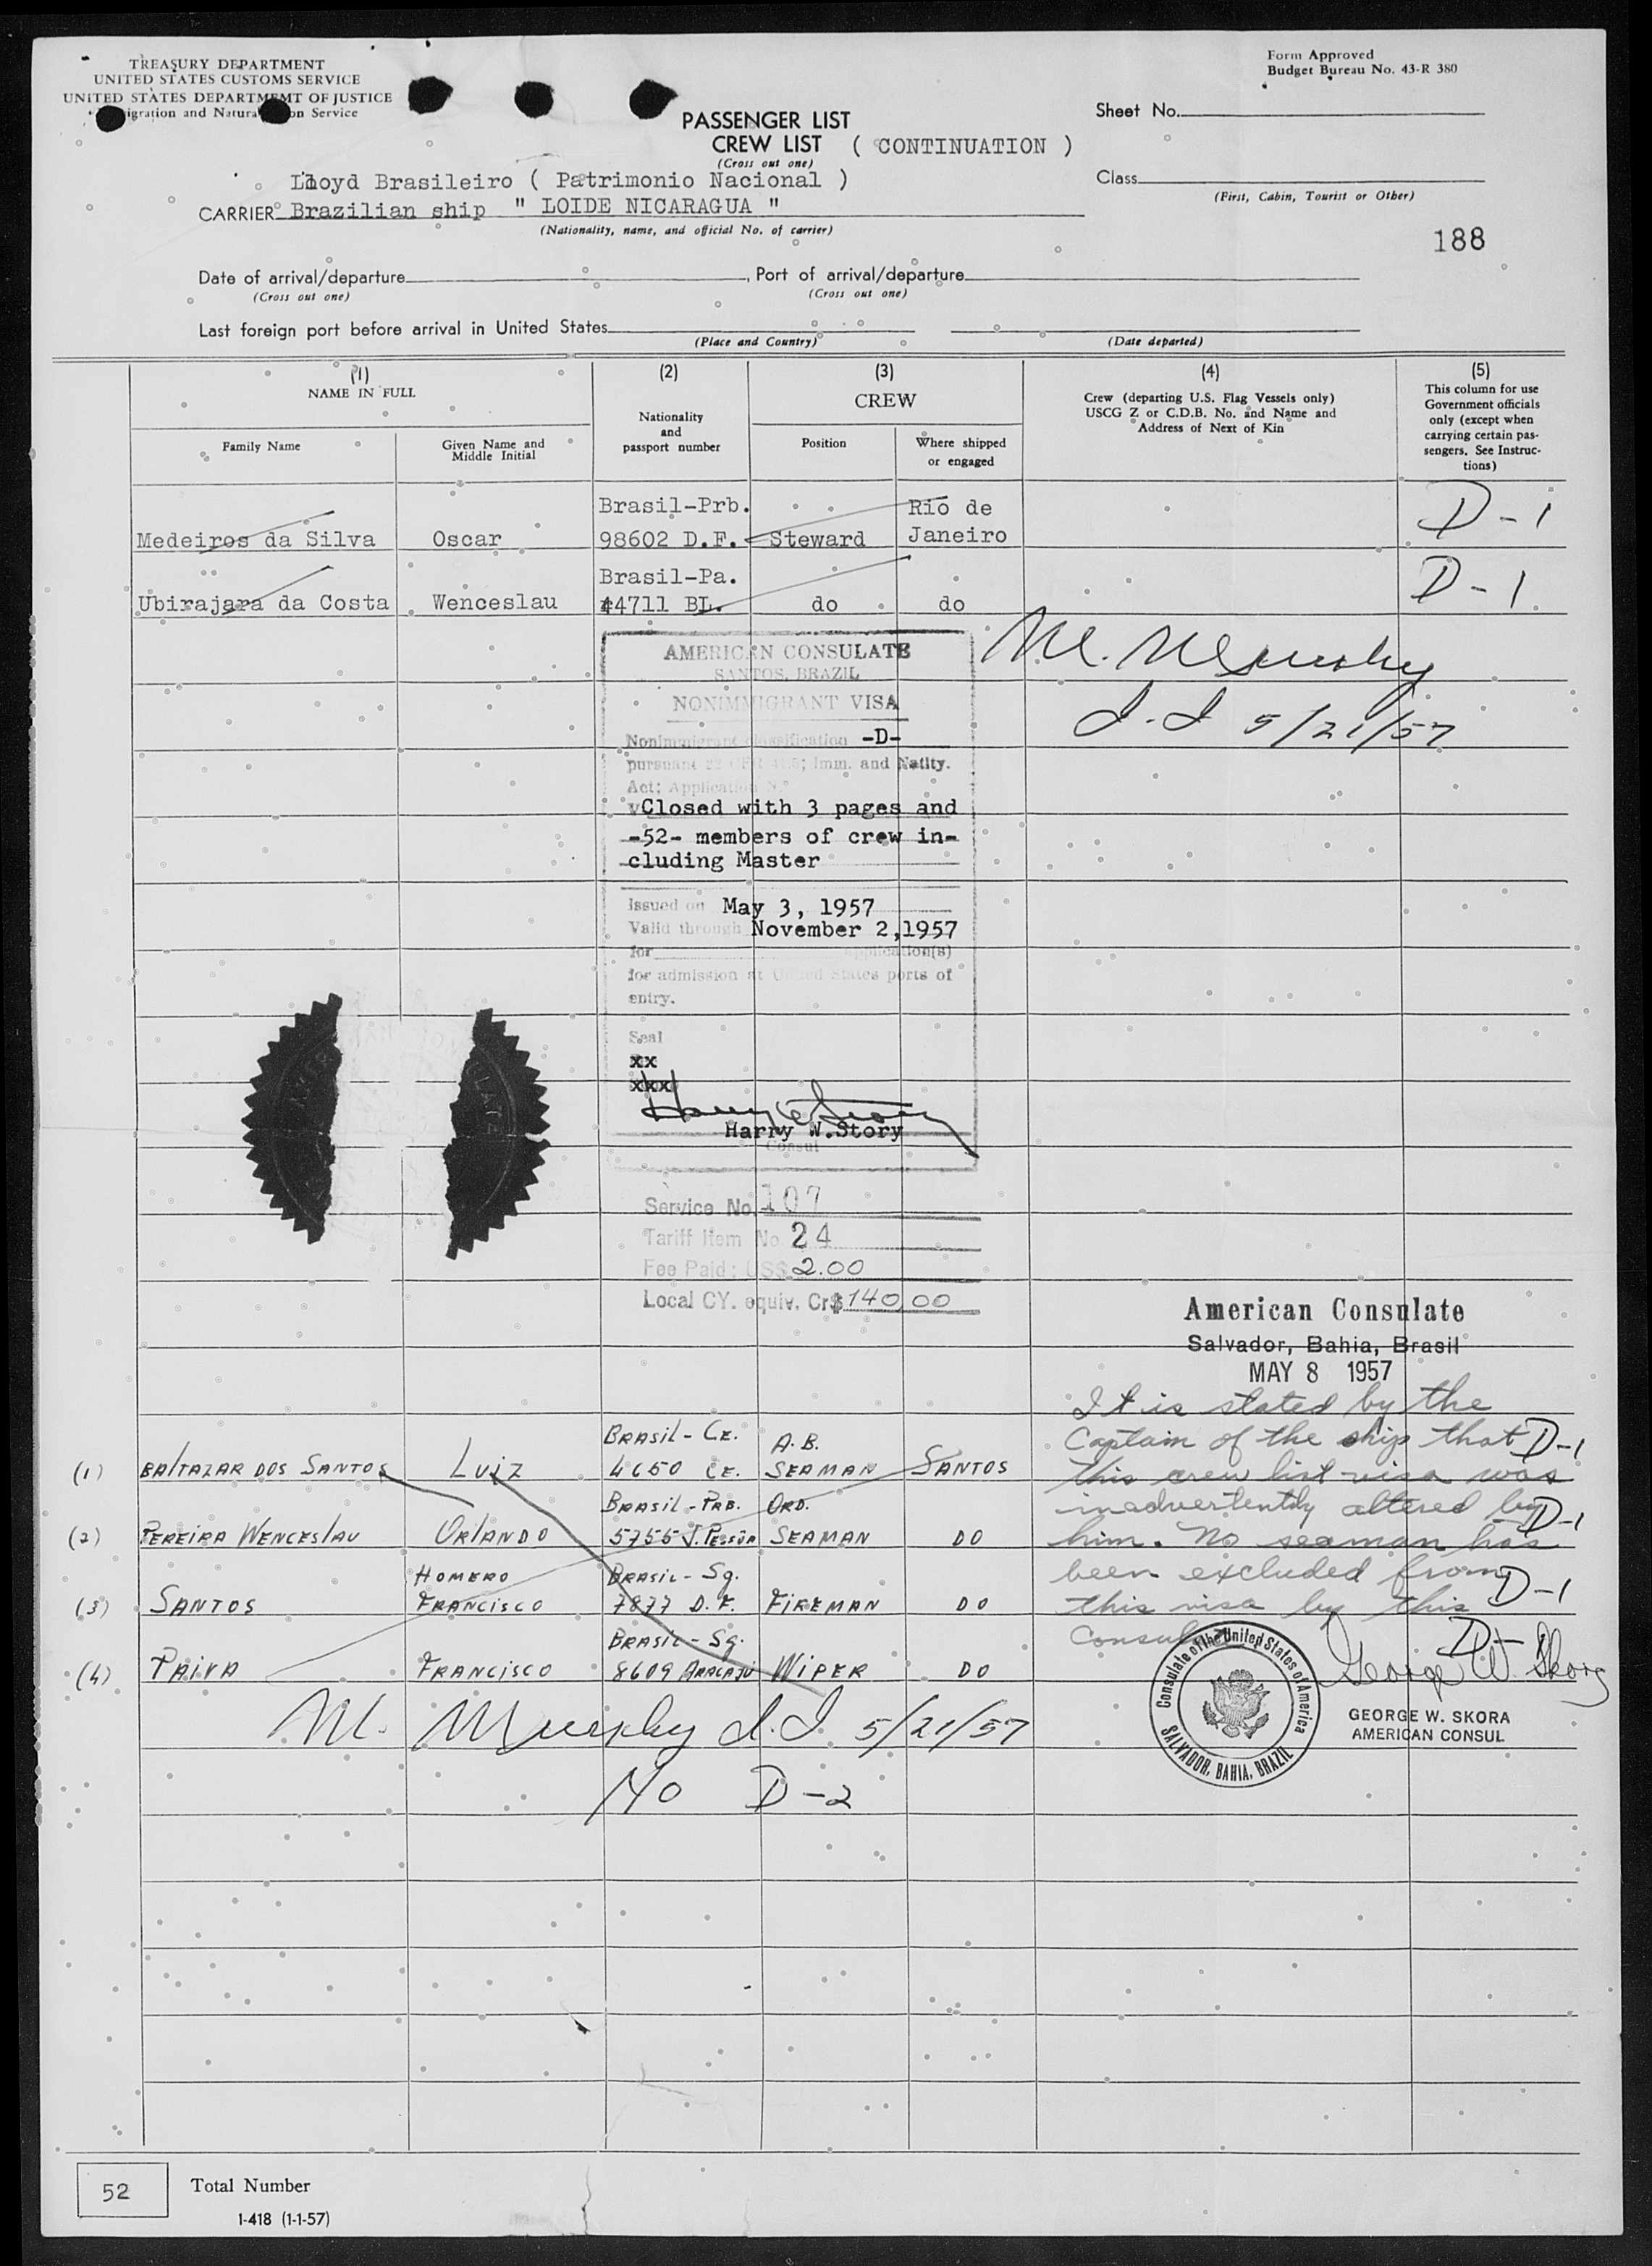 TREASURY DEPARTMENT
UNITED STATES CUSTOMS SERVICE
UNITED STATES DEPARTMEMT OF JUSTICE
igration and Natura on Service
Form Approved
Budget Bureau No. 43-R 380
PASSENGER LIST
CREW LIST ( CONTINUATION )
(Cross out one)
Sheet No.
Class
(First, Cabin, Tourist or Other)
Lloyd Brasileiro ( Patrimonio Nacional )
CARRIER Brazilian ship " LOIDE NICARAGUA "
(Nationality, name, and official No. of carrier)
188
Date of arrival/departure , Port of arrival/departure
(Cross out one) (Cross out one)
Last foreign port before arrival in United States
(Place and Country) (Date departed)
(1) (2) (3) (4) (5)
NAME IN FULL
Family Name
Given Name and
Middle Initial
Nationality
and
passport number
CREW
Position
Where shipped
or engaged
Crew (departing U.S. Flag Vessels only)
USCG Z or C.D.B. No. and Name and
Address of Next of Kin
This column for use
Government officials
only (except when
carrying certain pas-
sengers. See Instruc-
tions)
Brasil-Prb. Rio de
Medeiros da Silva Oscar 98602 D.F. Steward Janeiro D-1
Brasil-Pa.
Ubirajara da Costa Wenceslau 44711 BL. do do D-1
AMERICAN CONSULATE
SANTOS, BRAZIL
NONIMMIGRANT VISA
Nonimmigrant classification -D-
pursuant 22 CFR ; Imm. and Natlty.
Act; Application N.º
Closed with 3 pages and
-52- members of crew in-
cluding Master
Issued on May 3, 1957
Valid through November 2,1957
for application(s)
for admission at United States ports of
entry.
Seal
xx
xxx
Harry W. Story
Harry W.Story
Consul
M. Murphy
I.I 5/21/57
Service No. 107
Tariff Item No. 24
Fee Paid: US$ 2.00
Local CY. equiv. Cr$ 140,00
American Consulate
Salvador, Bahia, Brasil
MAY 8 1957
It is stated by the
Captain of the ship that
this crew list visa was
inadvertently altered by
him. No seaman has
been excluded from
this visa by this
Consulate
George W. Skora
GEORGE W. SKORA
AMERICAN CONSUL
Consulate of the United States of America
SALVADOR, BAHIA, BRAZIL
BRASIL - CE. A.B.
(1) BALTAZAR DOS SANTOS LUIZ 4650 CE. SEAMAN SANTOS D-1
BRASIL - PRB. ORD.
(2) PEREIRA WENCESLAU ORLANDO 5755 J. PESSÔA SEAMAN DO D-1
HOMERO BRASIL - Sg.
(3) SANTOS FRANCISCO 7877 D.F. FIREMAN DO D-1
BRASIL - Sg.
(4) PAIVA FRANCISCO 8609 ARACAJU WIPER DO D-
M. Murphy I.I. 5/21/57
No D-2
52 Total Number
1-418 (1-1-57)